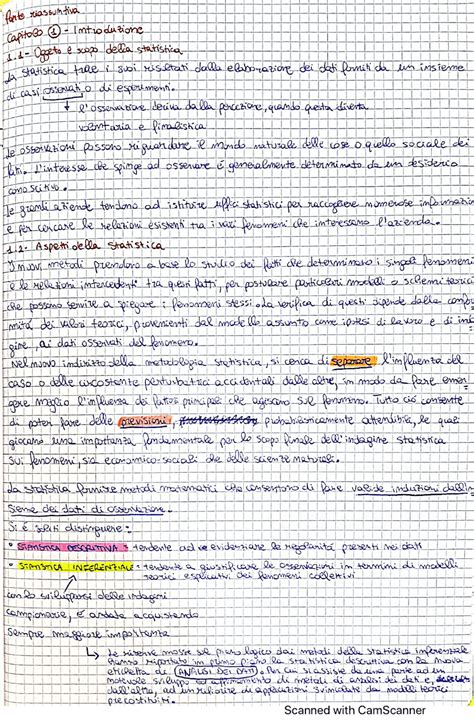 Parte riassuntiva
Capitolo 1 - Introduzione
1.1 - Oggetto e scopo della statistica
La statistica trae i suoi risultati dalla elaborazione dei dati forniti da un insieme
di casi osservati o di esperimenti.
↳ l'osservazione deriva dalla percezione, quando questa diventa
volontaria e finalistica
Le osservazioni possono riguardare il mondo naturale delle cose o quello sociale dei
fatti. L'interesse che spinge ad osservare è generalmente determinato da un desiderio
conoscitivo.
Le grandi aziende tendono ad istituire uffici statistici per raccogliere numerose informazioni
e per cercare le relazioni esistenti tra i vari fenomeni che interessano l'azienda.
1.2 - Aspetti della statistica
I nuovi metodi prendono a base lo studio dei fatti che determinano i singoli fenomeni
e le relazioni intercedenti tra questi fatti, per postulare particolari modelli o schemi teorici
che possono servire a spiegare i fenomeni stessi. La verifica di questi dipende dalla confor
mità dei valori teorici, provenienti dal modello assunto come ipotesi di lavoro e di inda
gine, ai dati osservati del fenomeno.
Nel nuovo indirizzo della metodologia statistica, si cerca di separare l'influenza del
caso o delle circostanze perturbatrici accidentali dalle altre, in modo da fare emer
gere meglio l'influenza dei fattori principali che agiscono sul fenomeno. Tutto ciò consente
di poter fare delle previsioni, probabilisticamente attendibili, le quali
giocano una importanza fondamentale per lo scopo finale dell'indagine statistica
sui fenomeni, sia economico-sociali che delle scienze naturali.
La statistica fornisce metodi matematici che consentono di fare valide induzioni dall'in
sieme dei dati di osservazione.
Si è soliti distinguere:
• STATISTICA DESCRITTIVA: tendente ad evidenziare le regolarità presenti nei dati
• STATISTICA INFERENZIALE: tendente a giustificare le osservazioni in termini di modelli
teorici esplicativi dei fenomeni collettivi
con lo svilupparsi delle indagini
campionarie, è andata acquistando
sempre maggiore importanza
↳ Le riserve mosse sul piano logico dai metodi della statistica inferenziale
hanno riportato in primo piano la statistica descrittiva con la nuova
etichetta di (ANALISI DEI DATI). Per cui si assiste da una parte ad un
notevole sviluppo ed affinamento di metodi di analisi dei dati e,
dall'altra, ad un rifiorire di applicazioni svincolate da modelli teorici
precostituiti.
Scanned with CamScanner